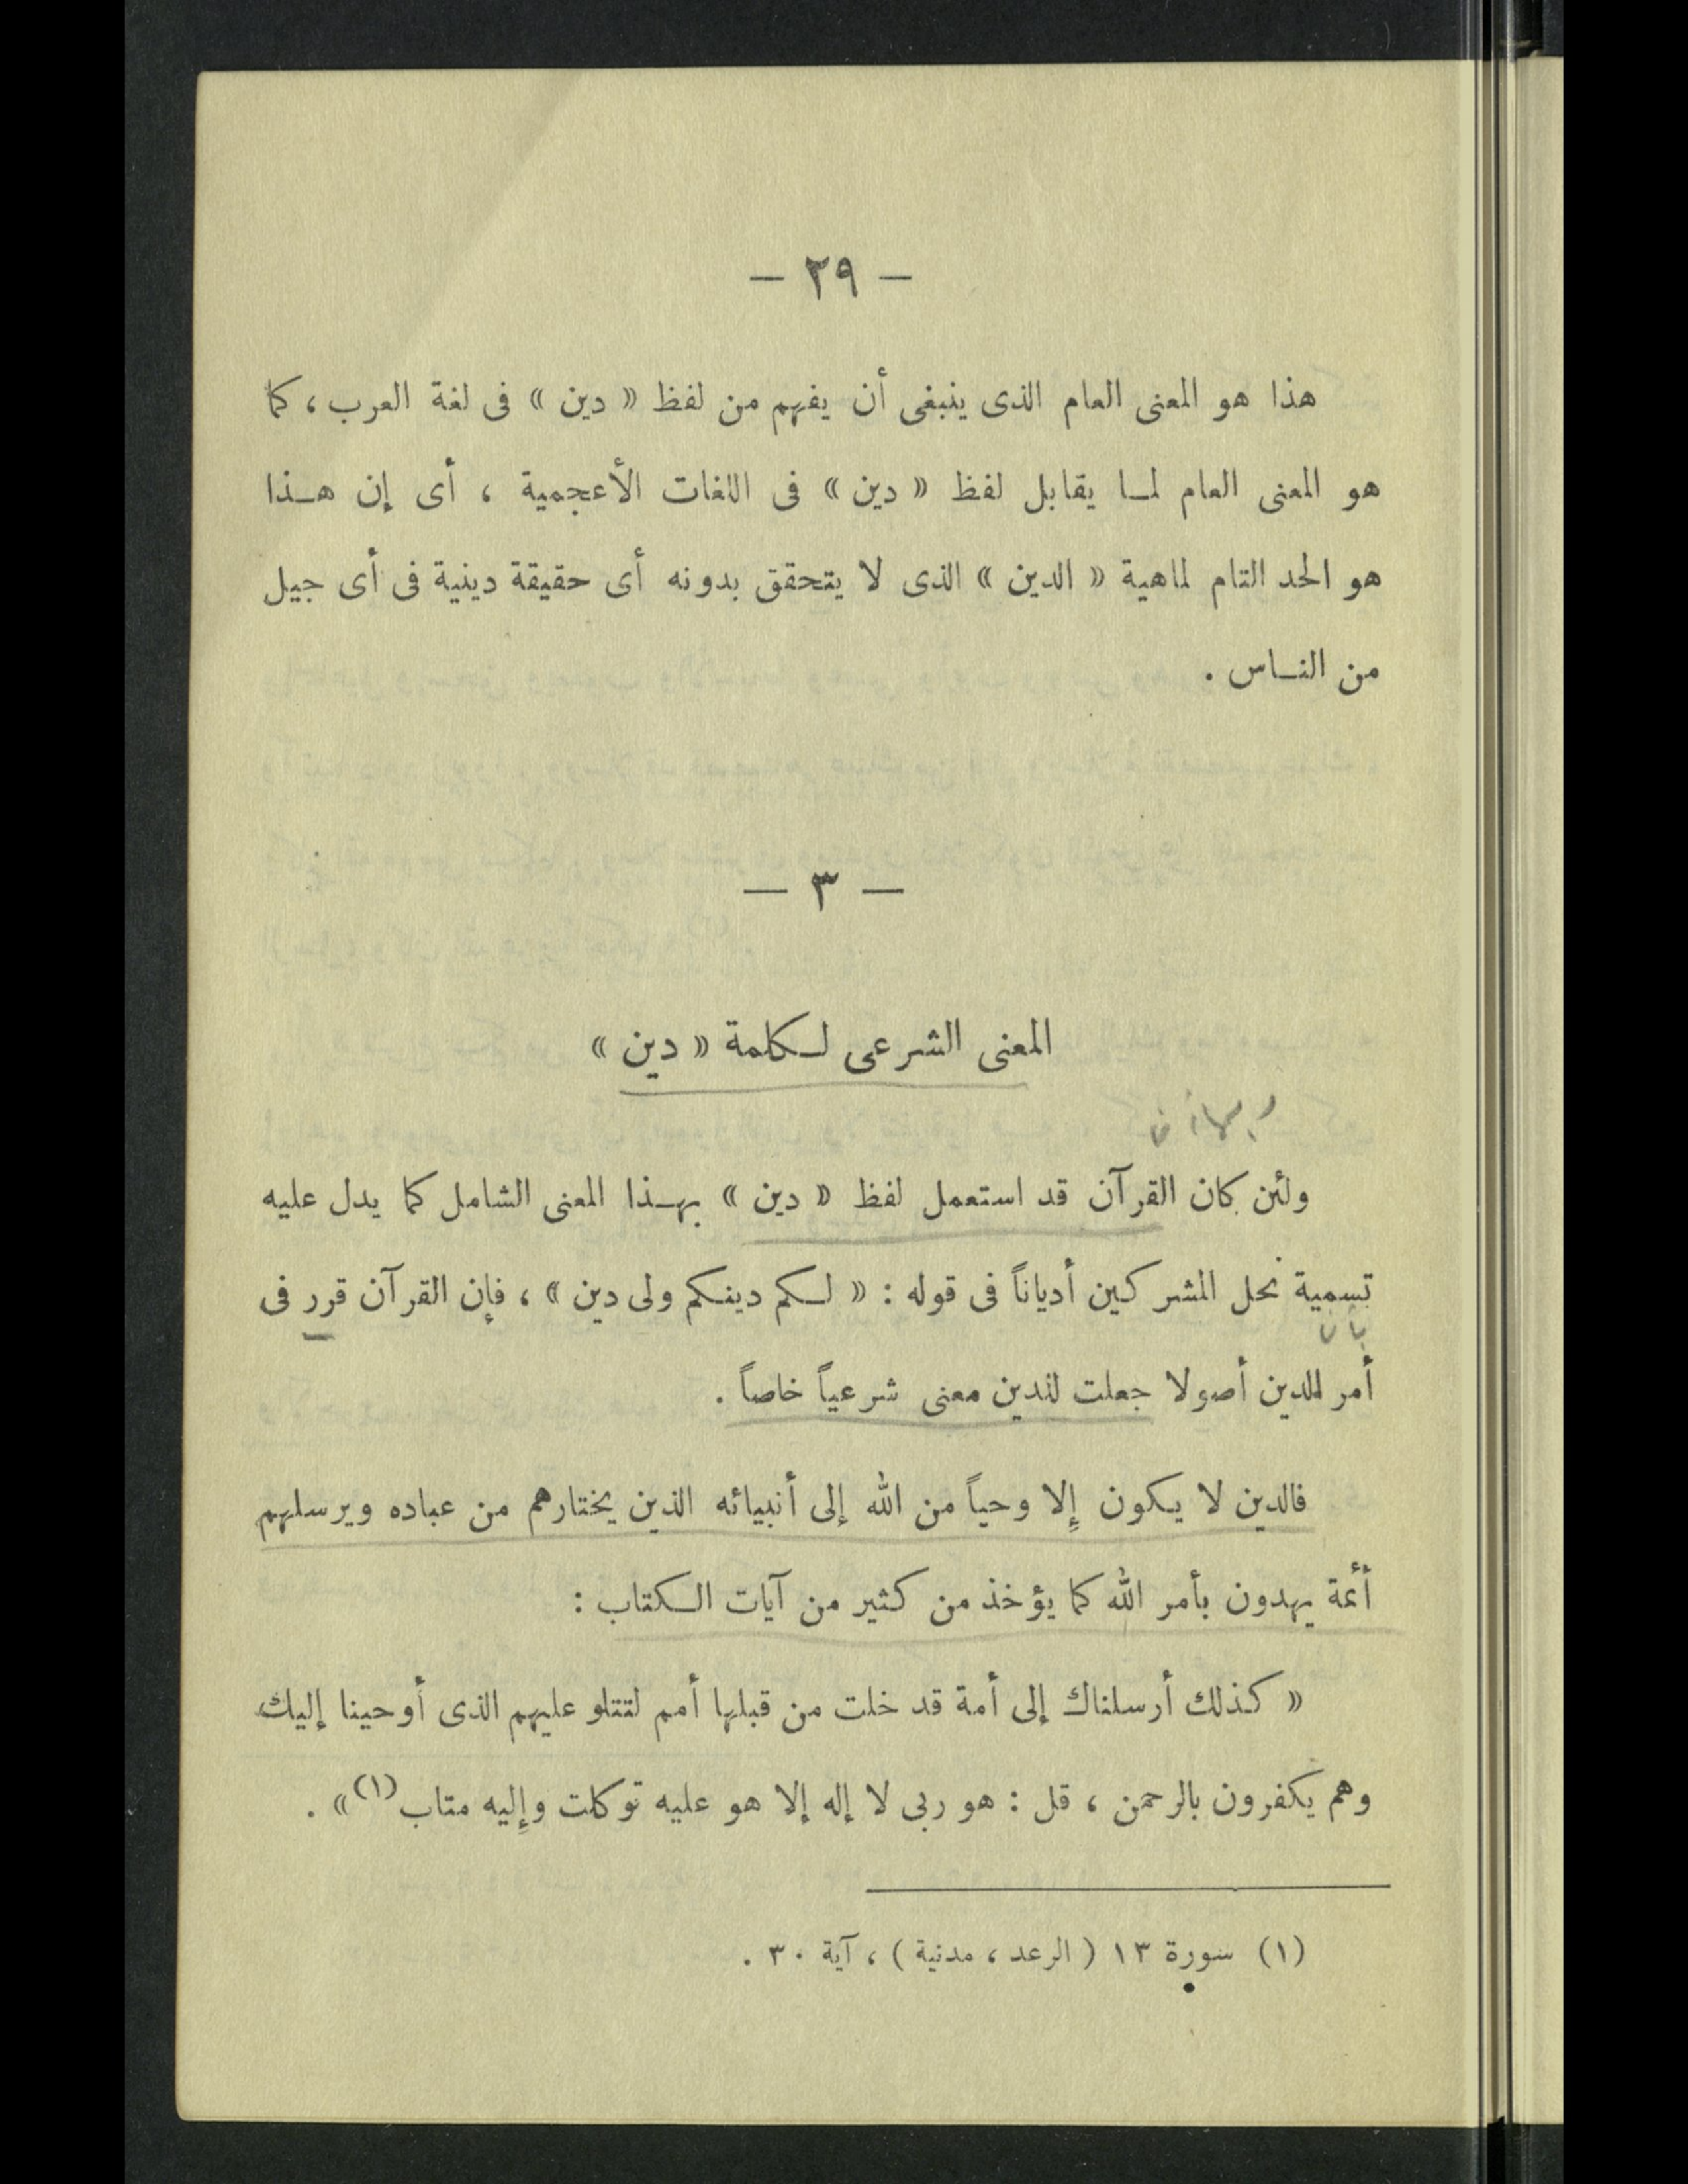 — ٢٩ —
هذا هو المعنى العام الذى ينبغى أن يفهم من لفظ « دين » فى لغة العرب ، كما
هو المعنى العام لما يقابل لفظ « دين » فى اللغات الأعجمية ، أى إن هذا
هو الحد التام لماهية « الدين » الذى لا يتحقق بدونه أى حقيقة دينية فى أى جيل
من الناس .
— ٣ —
المعنى الشرعى لكلمة « دين »
ولئن كان القرآن قد استعمل لفظ « دين » بهذا المعنى الشامل كما يدل عليه
تسمية نحل المشركين أدياناً فى قوله : « لكم دينكم ولى دين » ، فإن القرآن قرر فى
أمر الدين أصولا جعلت للدين معنى شرعياً خاصاً .
فالدين لا يكون إلا وحياً من الله إلى أنبيائه الذين يختارهم من عباده ويرسلهم
أئمة يهدون بأمر الله كما يؤخذ من كثير من آيات الكتاب :
« كذلك أرسلناك إلى أمة قد خلت من قبلها أمم لتتلو عليهم الذى أوحينا إليك
وهم يكفرون بالرحمن ، قل : هو ربى لا إله إلا هو عليه توكلت وإليه متاب (١) » .
(١) سورة ١٣ ( الرعد ، مدنية ) ، آية ٣٠ .